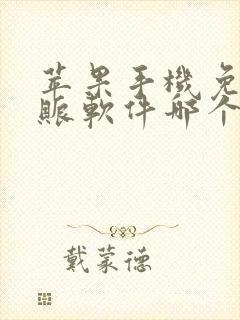 苹果手機免
賬軟件哪个
戴蒙德